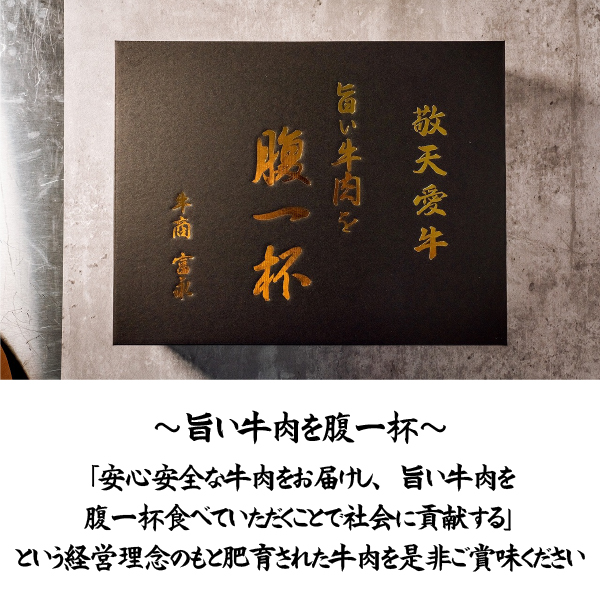 敬天愛牛
旨い牛肉を
腹一杯
牛商 富永
～旨い牛肉を腹一杯～
「安心安全な牛肉をお届けし、旨い牛肉を
腹一杯食べていただくことで社会に貢献する」
という経営理念のもと肥育された牛肉を是非ご賞味ください